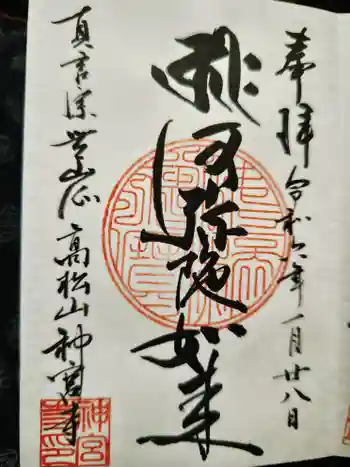 奉拝 令和六年一月廿八日
阿弥陀如来
真言宗豊山派 高松山神宮寺
神宮
寺印